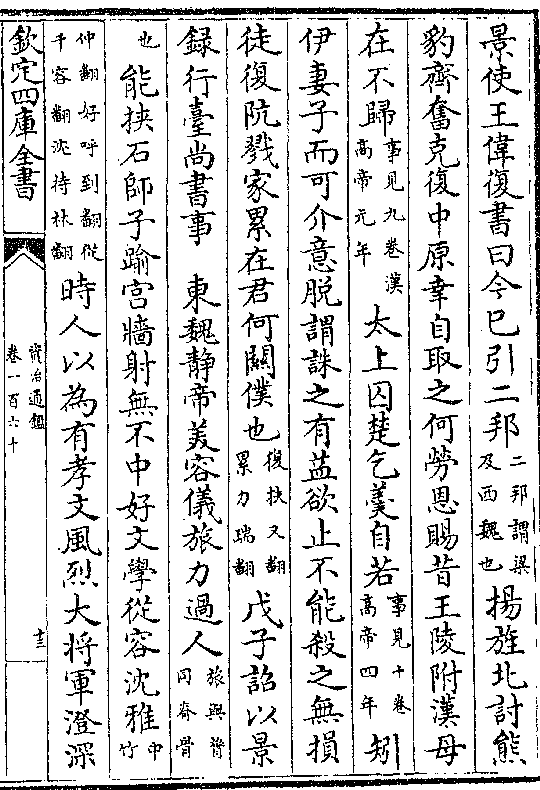 景使王偉復書曰今已引二邦二邦謂梁及西魏也揚旌北討熊
豹齊奮克復中原幸自取之何勞恩賜昔王陵附漢母
在不歸事見九卷漢高帝元年太上囚楚乞羮自若事見十卷高帝四年矧
伊妻子而可介意脱謂誅之有益欲止不能殺之無損
徒復阬戮家累在君何關僕也復扶又翻累力瑞翻戊子詔以景
録行臺尚書事 東魏静帝美容儀旅力過人旅與膂同脊骨
也能挟石師子踰宫牆射無不中好文學從容沈雅中竹
仲翻好呼到翻從千容翻沈持林翻時人以為有孝文風烈大将軍澄深
欽定四庫全書
資治通鑑
卷一百六十
十三